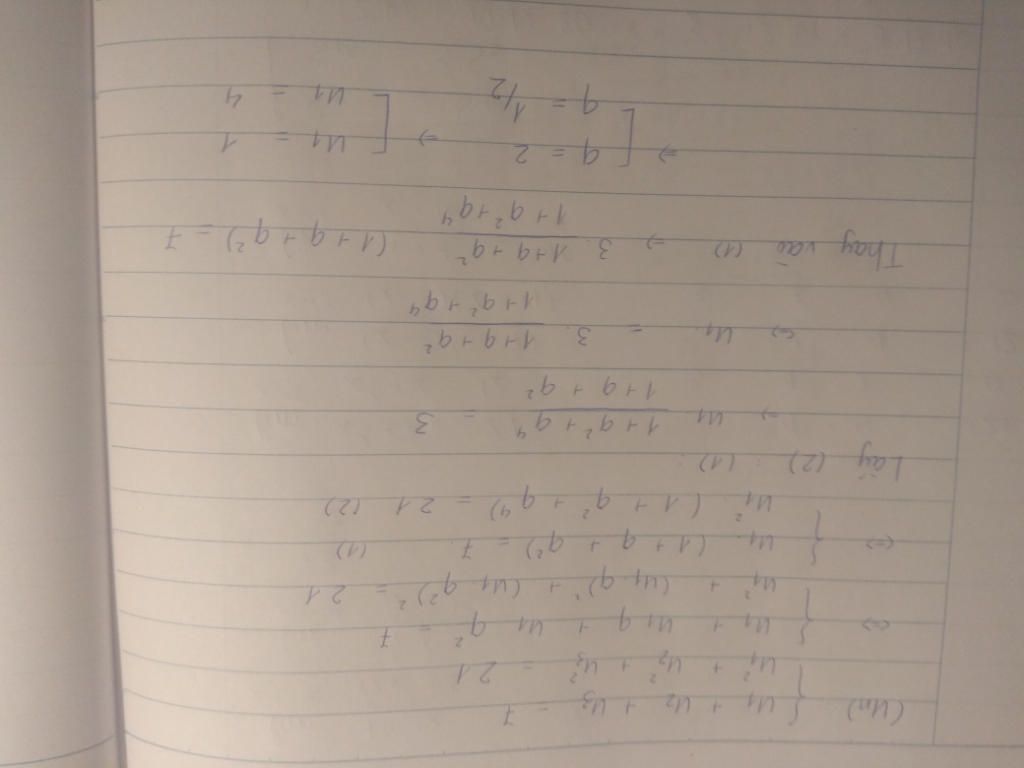 (Un) { U1 + U2 + U3 = 7
U1² + U2² + U3² = 21
<=> { U1 + U1 q + U1 q² = 7
U1² + (U1 q)² + (U1 q²)² = 21
<=> { U1. (1 + q + q²) = 7. (1)
U1². (1 + q² + q⁴) = 21 (2)
Lấy (2) : (1) :
=> U1 (1 + q² + q⁴)/(1 + q + q²) = 3
<=> U1. = 3. (1 + q + q²)/(1 + q² + q⁴)
Thay vào (1) => 3. (1 + q + q²)/(1 + q² + q⁴) (1 + q + q²) = 7
=> [ q = 2 => [ U1 = 1
q = 1/2 U1 = 4